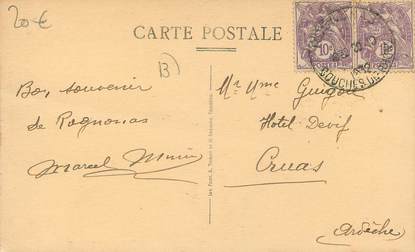 20 €
CARTE POSTALE
13
10c
10c
BOUCHES DU
Bon souvenir
de Rognonas
Marcel
Mr Mme Guigou
Hotel Devif
Cruas
Ardèche